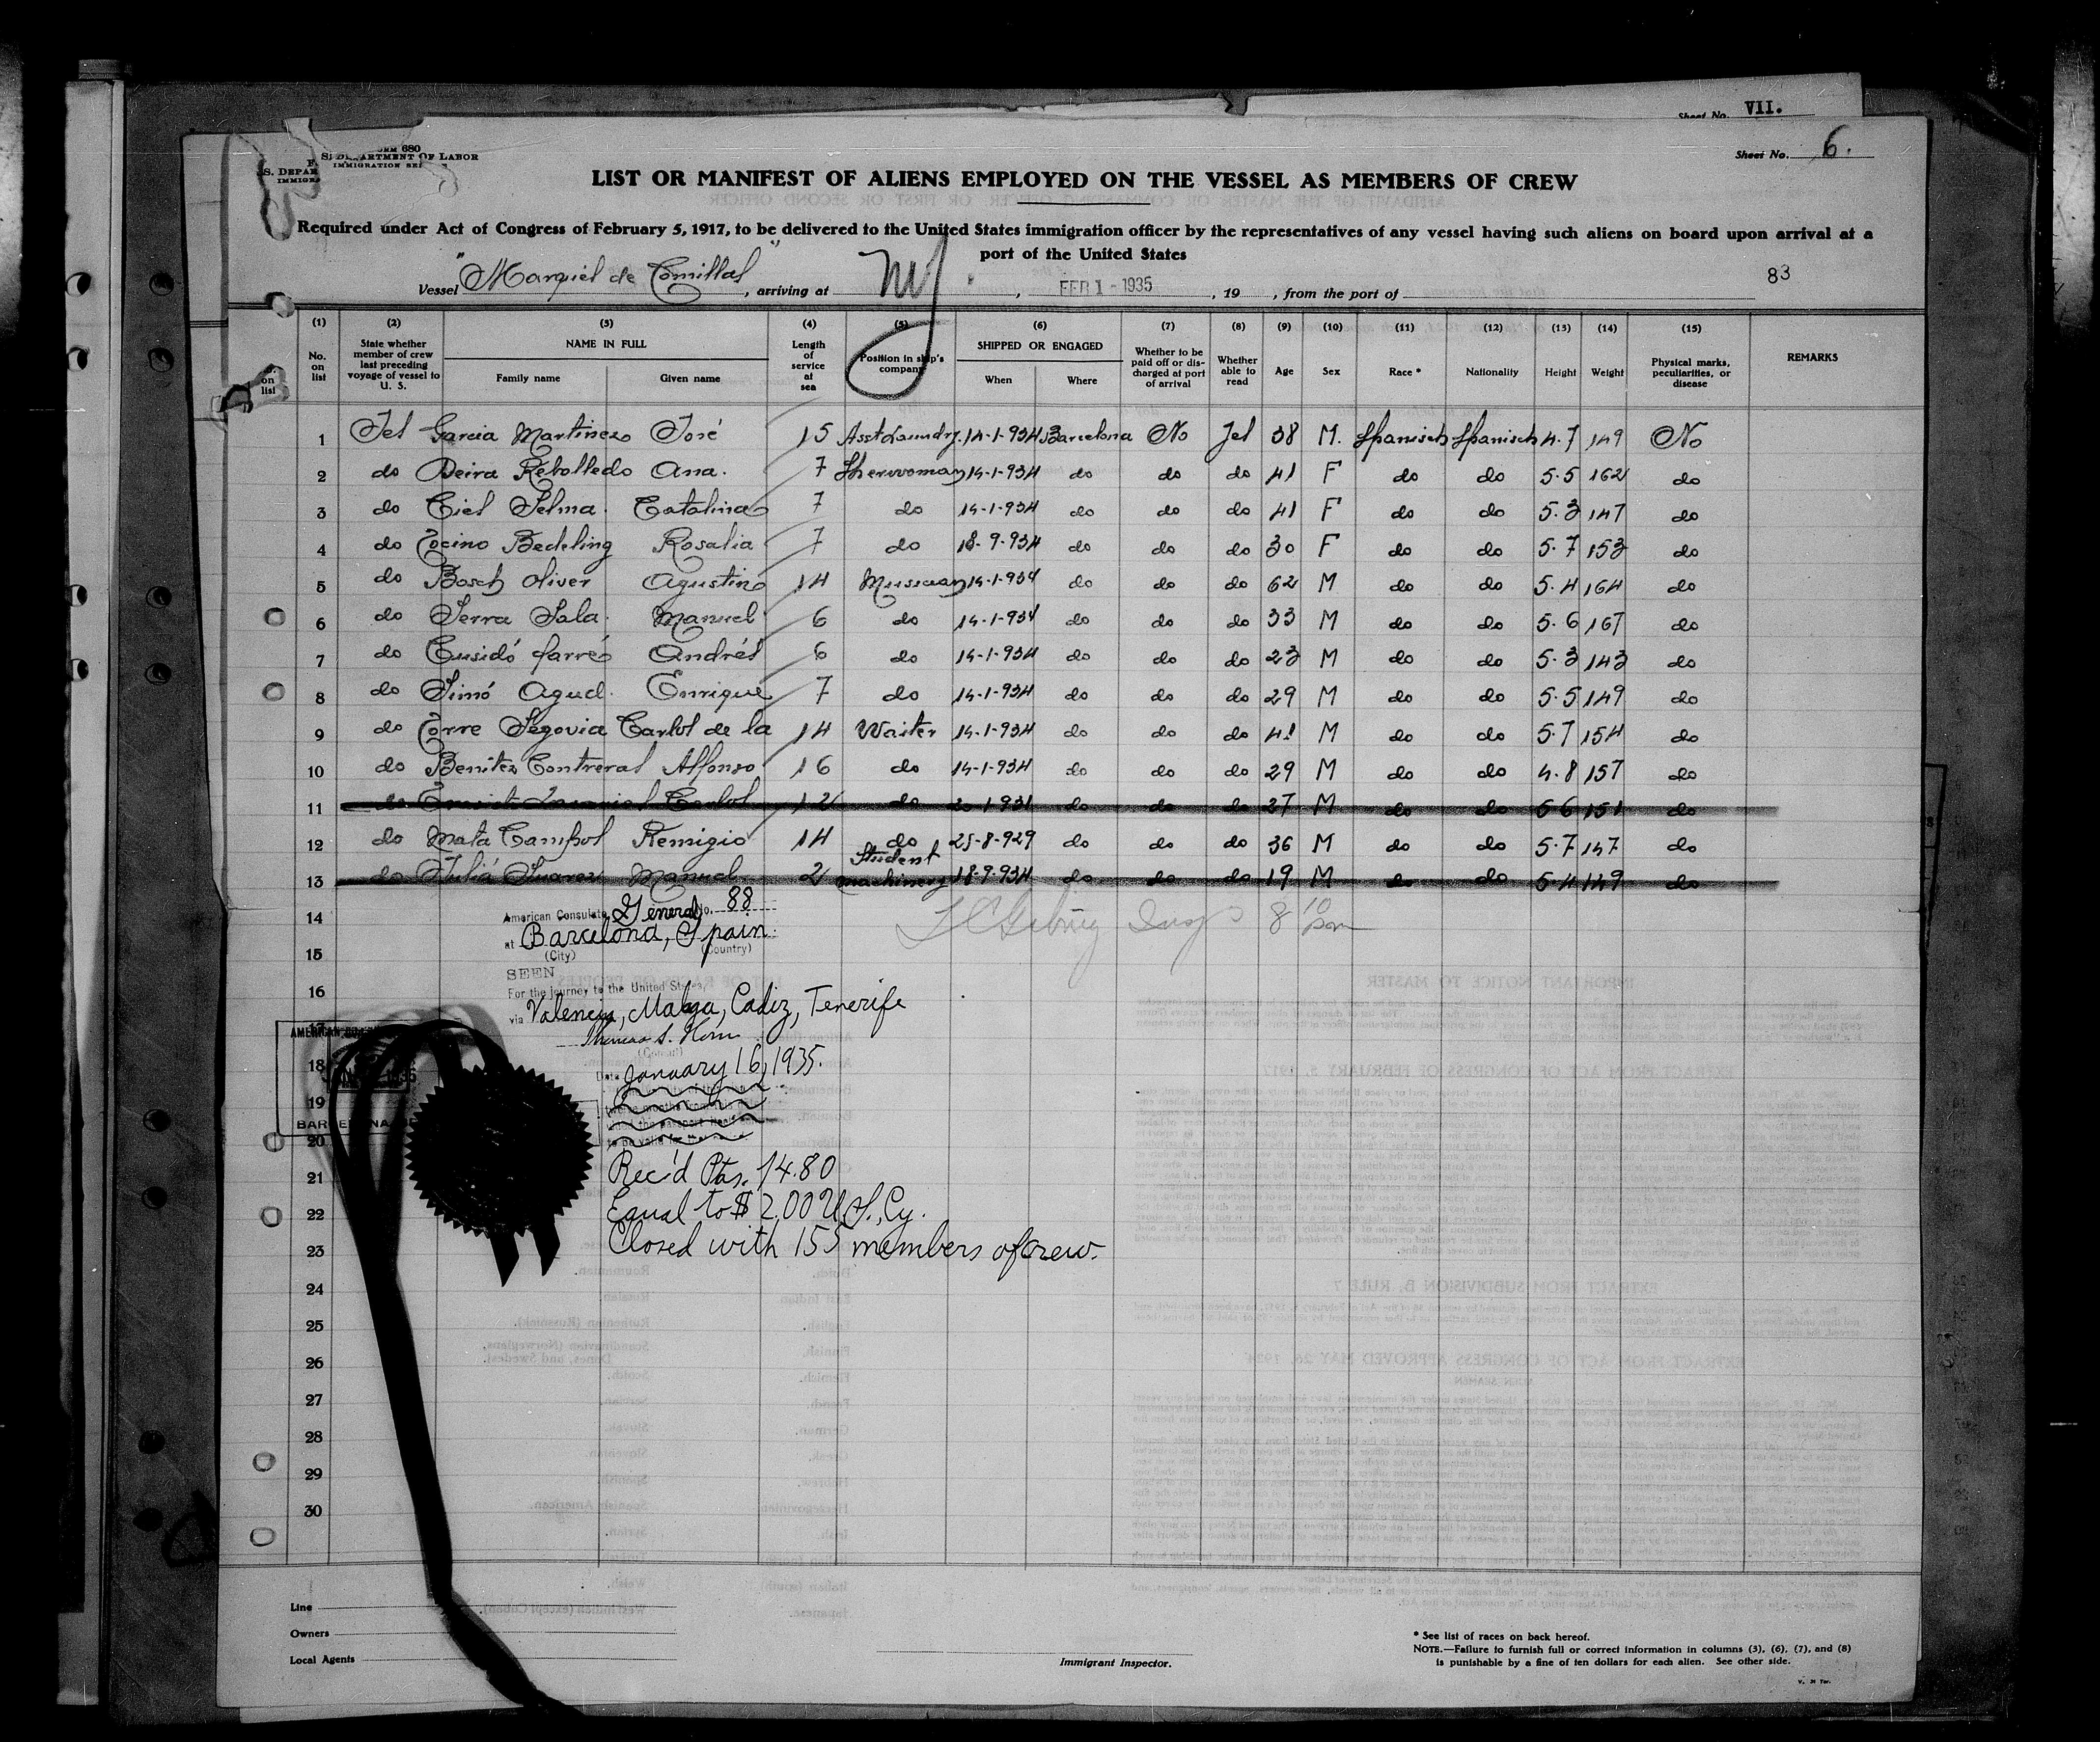 Sheet No. VII.
Sheet No. 6.
FORM 680
S. DEPARTMENT OF LABOR
IMMIGRATION SER
S. DEPAR
IMMIGRA
LIST OR MANIFEST OF ALIENS EMPLOYED ON THE VESSEL AS MEMBERS OF CREW
Required under Act of Congress of February 5, 1917, to be delivered to the United States immigration officer by the representatives of any vessel having such aliens on board upon arrival at a
port of the United States
83
Vessel "Marques de Comillas", arriving at NY, FEB 1 - 1935, 19 , from the port of
(1) (2) (3) (4) (5) (6) (7) (8) (9) (10) (11) (12) (13) (14) (15)
No. on list State whether member of crew last preceding voyage of vessel to U. S. NAME IN FULL Family name Given name Length of service at sea Position in ship's company SHIPPED OR ENGAGED When Where Whether to be paid off or discharged at port of arrival Whether able to read Age Sex Race * Nationality Height Weight Physical marks, peculiarities, or disease REMARKS
1 Yes Garcia Martinez José 15 Asst Laundry. 14-1-934 Barcelona No Yes 38 M. Spanisch Spanisch 4.7 149 No
2 do Neira Rebolledo Ana. 7 14-1-934 do do do 41 F do do 5.5 162 do
3 do Catalina 7 do 14-1-934 do do do 41 F do do 5.3 147 do
4 do Rosalia 7 do 18-9-934 do do do 30 F do do 5.7 153 do
5 do Bosch Oliver Agustin 14 Musician 14-1-934 do do do 62 M do do 5.4 164 do
6 do Serra Sala. Manuel 6 do 14-1-934 do do do 33 M do do 5.6 167 do
7 do Cusidó farré Andrés 6 do 14-1-934 do do do 23 M do do 5.3 143 do
8 do Simó Agud. Enrique 7 do 14-1-934 do do do 29 M do do 5.5 149 do
9 do Torre Segovia Carlos de la 14 Waiter 14-1-934 do do do 41 M do do 5.7 154 do
10 do Benitez Contreras Alfonso 16 do 14-1-934 do do do 29 M do do 4.8 157 do
11 do Carlos 12 do do do do 27 M do do 5 6 151 do
12 do Mata Campos Remigio 14 do 25-8-929 do do do 36 M do do 5.7 147 do
13 do Juliá Suarez Manuel 2 Student machinery 18-9-934 do do do 19 M do do 5.4 149 do
14
8 10 pm
American Consulate General No. 88
at Barcelona, Spain.
(City) (Country)
15
SEEN
For the journey to the United States,
16
via Valencia, Malaga, Cadiz, Tenerife
17
Thomas S. Horn
(Consul)
18
Date January 16, 1935.
19
BARCELONA
20
21
Rec'd Pts. 14.80
22
Equal to $ 2.00 U.S. Cy.
23
Closed with 155 members of crew.
24
25
26
27
28
29
30
Line
Owners
Local Agents
Immigrant Inspector.
* See list of races on back hereof.
NOTE.—Failure to furnish full or correct information in columns (3), (6), (7), and (8)
is punishable by a fine of ten dollars for each alien. See other side.